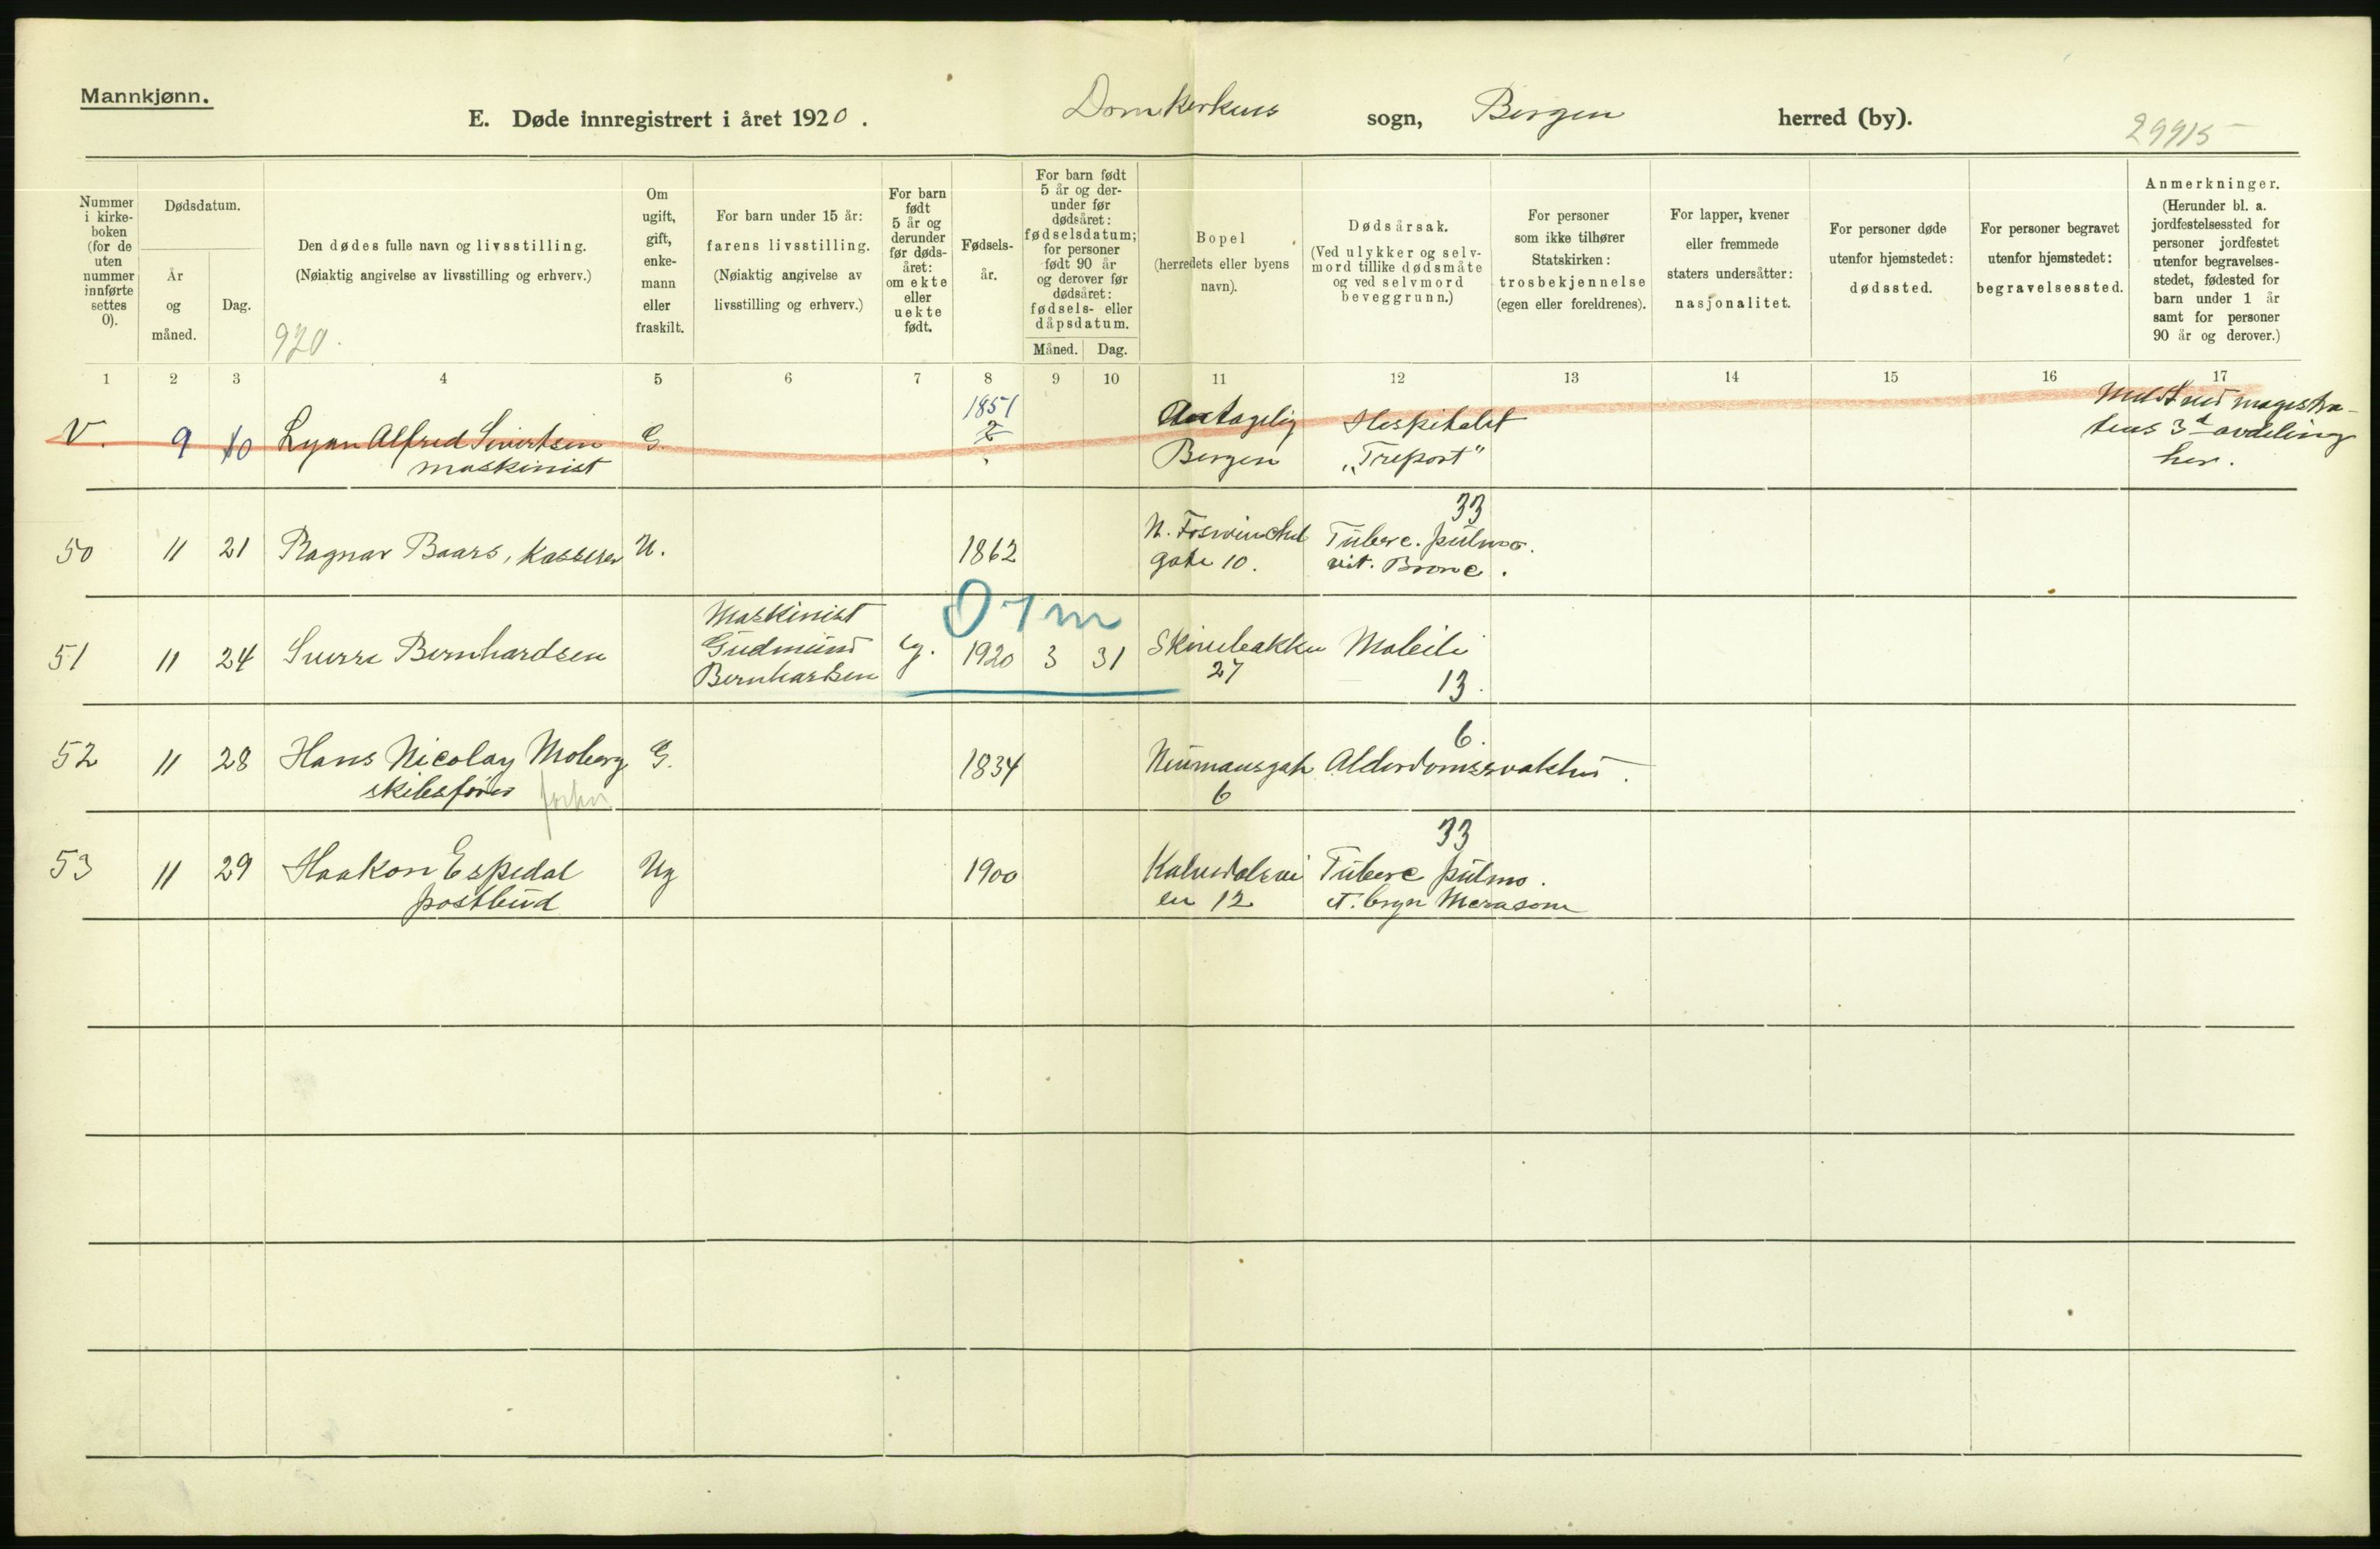 Mannkjønn.
E. Døde innregistrert i året 1920. Domkirkens sogn, Bergen herred (by).
29915
Nummer
i kirke-
boken
(for de
uten
nummer
innførte
settes
0).
Dødsdatum.
År
og
måned.
Dag.
Den dødes fulle navn og livsstilling.
(Nøiaktig angivelse av livsstilling og erhverv.)
920.
Om
ugift,
gift,
enke-
mann
eller
fraskilt.
For barn under 15 år:
farens livsstilling.
(Nøiaktig angivelse av
livsstilling og erhverv.)
For barn
født
5 år og
derunder
før døds-
året:
om ekte
eller
uekte
født.
Fødsels-
år.
For barn født
5 år og der-
under før
dødsåret:
fødselsdatum;
for personer
født 90 år
og derover før
dødsåret:
fødsels- eller
dåpsdatum.
Måned. Dag.
Bopel
(herredets eller byens
navn).
Dødsårsak.
(Ved ulykker og selv-
mord tillike dødsmåte
og ved selvmord
beveggrunn.)
For personer
som ikke tilhører
Statskirken:
trosbekjennelse
(egen eller foreldrenes).
For lapper, kvener
eller fremmede
staters undersåtter:
nasjonalitet.
For personer døde
utenfor hjemstedet:
dødssted.
For personer begravet
utenfor hjemstedet:
begravelsessted.
Anmerkninger.
(Herunder bl. a.
jordfestelsessted for
personer jordfestet
utenfor begravelses-
stedet, fødested for
barn under 1 år
samt for personer
90 år og derover.)
1 2 3 4 5 6 7 8 9 10 11 12 13 14 15 16 17
V. 9 10 Lynn Alfred Sivertsen
maskinist
G.
1851
2
Antagelig
Bergen
Hospitalet
"Treport"
Meldt ved magistra-
tens 3d avdeling
her.
50 11 21 Ragnar Baars, Kasserer U. 1862
gate 10.
33
Tuberc. pulmo.
51 11 24 Sverre Bernhardsen
Maskinist
Gudmund
Bernhardsen
eg.
0 7 m
1920 3 31
Skivebakken
27
Mobili
13.
52 11 28 Hans Nicolay Moberg
skibsfører forhv
G. 1834
Neumansgate
6
6.
Alderdomssvakhet.
53 11 29 Haakon Espedal
postbud
Ug 1900
Kalvedalsvei
en 12
33
Tuberc pulmo.